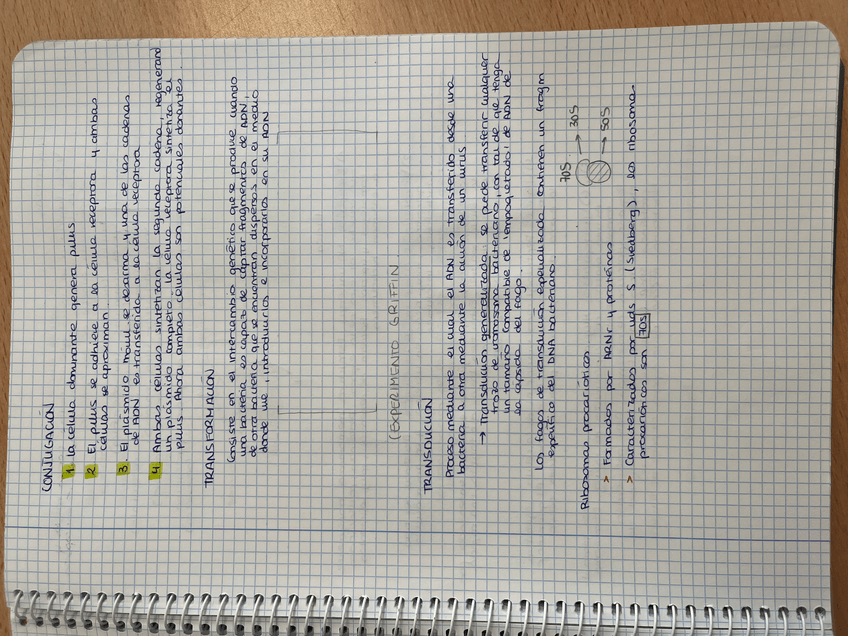 CONJUGACIÓN
1. La célula dominante genera pilus
2 El pilus se adhiere a la célula receptora y ambas
células se aproximan.
3. El plásmido móvil se desarma y una de las cadenas
de ADN es transferida a la célula receptora
4. Ambas células sintetizan la segunda cadena, regenerand
un plásmido completo. La célula receptora sintetiza el
pilus. Ahora ambas células son potenciales donantes.
TRANSFORMACIÓN
Consiste en el intercambio genético que se produce cuando
una bacteria es capaz de captar fragmentos de ADN,
de otra bacteria que se encuentran dispersos en el medio
donde vive, introducirlos e incorporarlos en su ADN
(EXPERIMENTO GRIFFIN
TRANSDUCCIÓN
Proceso mediante el cual el ADN es transferido desde una
bacteria a otra mediante la acción de un virus.
→ Transducción generalizada: se puede transferir cualquier
trozo de cromosoma bacteriano, con tal de que tenga
un tamaño compatible de "empaquetado" de ADN de
la cápsida del fago.
Los fagos de transducción especializada contienen un fragm
específico del DNA bacteriano.
Ribosomas procarióticos
> Formados por ARNr y proteínas
70S → 30S
→ 50S
> Caracterizados por uds S (Svedberg), los ribosoma-
procarióticos son 70S